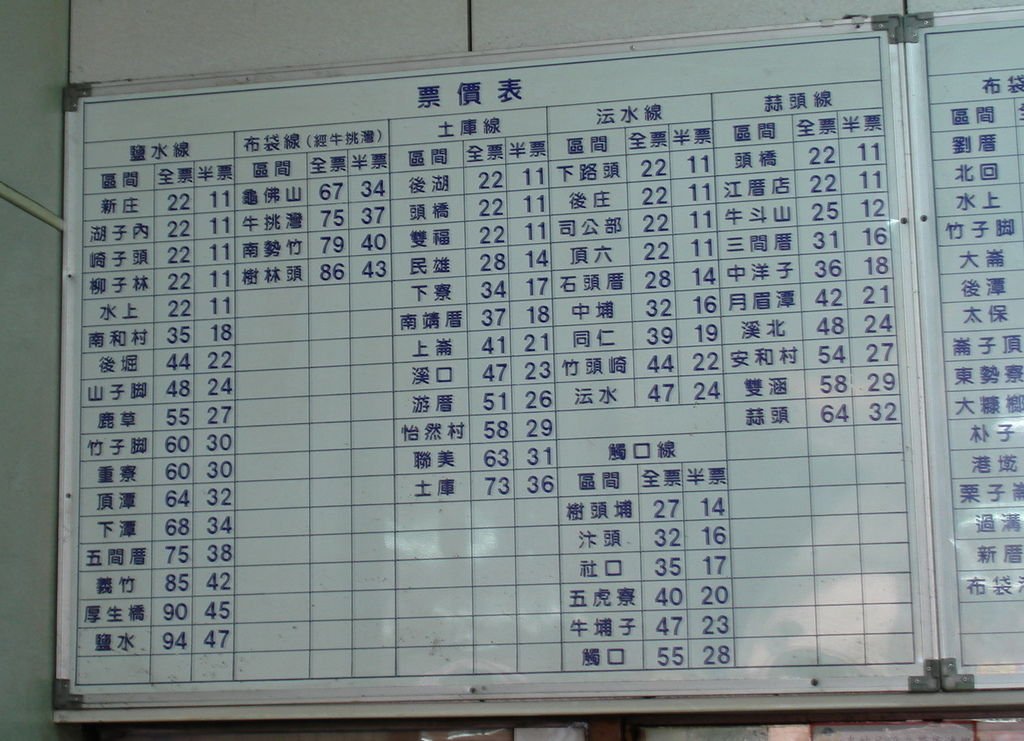 票價表
鹽水線
區間 全票 半票
新庄 22 11
湖子內 22 11
崎子頭 22 11
柳子林 22 11
水上 22 11
南和村 35 18
後堀 44 22
山子脚 48 24
鹿草 55 27
竹子脚 60 30
重寮 60 30
頂潭 64 32
下潭 68 34
五間厝 75 38
義竹 85 42
厚生橋 90 45
鹽水 94 47
布袋線(經牛挑灣)
區間 全票 半票
龜佛山 67 34
牛挑灣 75 37
南勢竹 79 40
樹林頭 86 43
土庫線
區間 全票 半票
後湖 22 11
頭橋 22 11
雙福 22 11
民雄 28 14
下寮 34 17
南靖厝 37 18
上崙 41 21
溪口 47 23
游厝 51 26
怡然村 58 29
聯美 63 31
土庫 73 36
沄水線
區間 全票 半票
下路頭 22 11
後庄 22 11
司公部 22 11
頂六 22 11
石頭厝 28 14
中埔 32 16
同仁 39 19
竹頭崎 44 22
沄水 47 24
觸口線
區間 全票 半票
樹頭埔 27 14
汴頭 32 16
社口 35 17
五虎寮 40 20
牛埔子 47 23
觸口 55 28
蒜頭線
區間 全票 半票
頭橋 22 11
江厝店 22 11
牛斗山 25 12
三間厝 31 16
中洋子 36 18
月眉潭 42 21
溪北 48 24
安和村 54 27
雙涵 58 29
蒜頭 64 32
布袋
區間
劉厝
北回
水上
竹子脚
大崙
後潭
太保
崙子頂
東勢寮
大糠榔
朴子
港墘
栗子崙
過溝
新厝
布袋